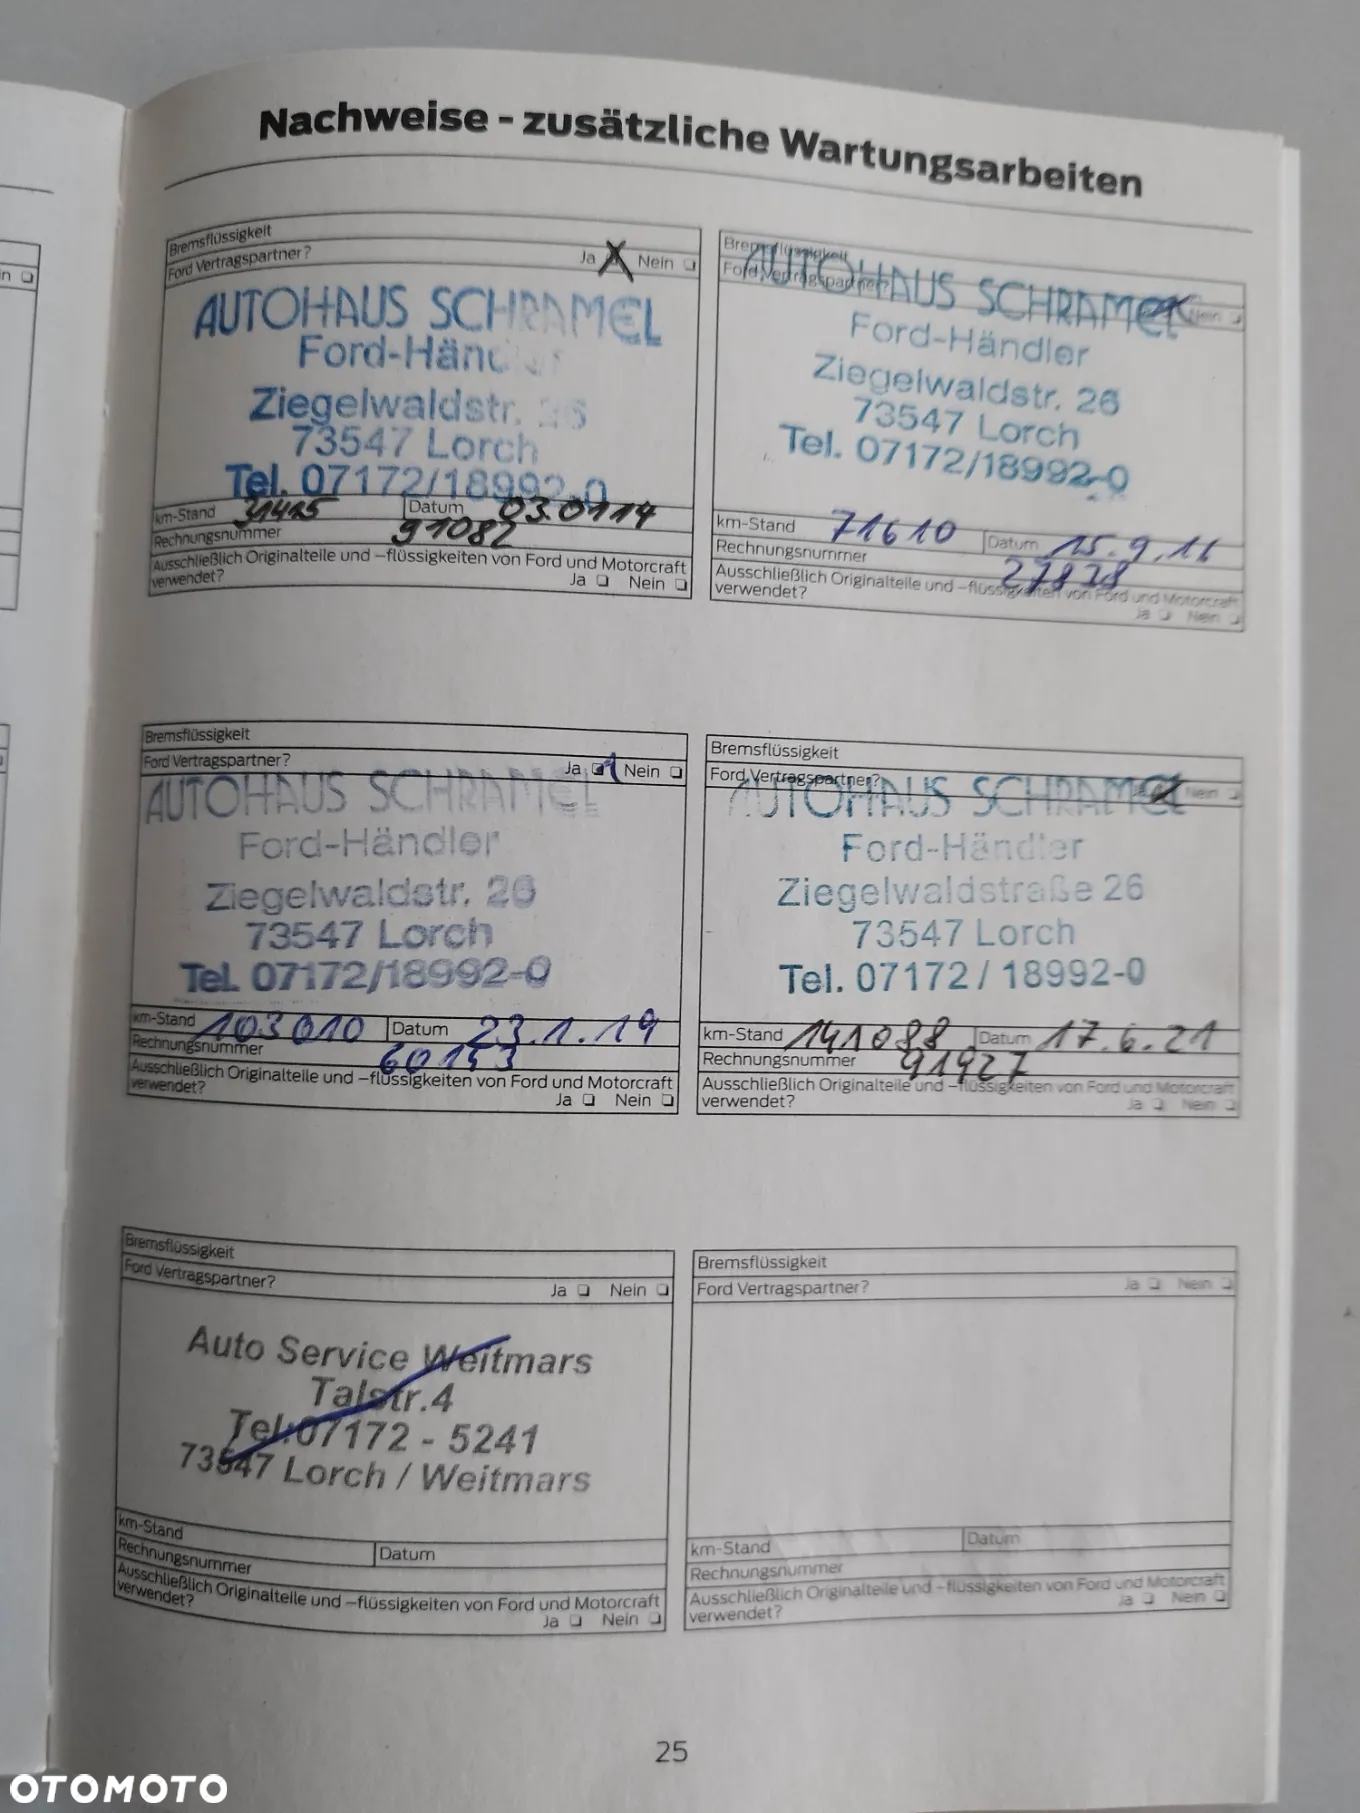 Nachweise - zusätzliche Wartungsarbeiten
Bremsflüssigkeit
Ford Vertragspartner? Ja Nein
AUTOHAUS SCHRAMEL
Ford-Händler
Ziegelwaldstr. 26
73547 Lorch
Tel. 07172/18992-0
km-Stand 31415 Datum 03.01.14
Rechnungsnummer 91082
Ausschließlich Originalteile und –flüssigkeiten von Ford und Motorcraft
verwendet? Ja Nein
Bremsflüssigkeit
Ford Vertragspartner? Nein
AUTOHAUS SCHRAMEL
Ford-Händler
Ziegelwaldstr. 26
73547 Lorch
Tel. 07172/18992-0
km-Stand 71610 Datum 15.9.16
Rechnungsnummer 27838
Ausschließlich Originalteile und –flüssigkeiten von Ford und Motorcraft
verwendet? Ja Nein
Bremsflüssigkeit
Ford Vertragspartner? Ja Nein
AUTOHAUS SCHRAMEL
Ford-Händler
Ziegelwaldstr. 26
73547 Lorch
Tel. 07172/18992-0
km-Stand 103010 Datum 23.1.19
Rechnungsnummer 60153
Ausschließlich Originalteile und –flüssigkeiten von Ford und Motorcraft
verwendet? Ja Nein
Bremsflüssigkeit
Ford Vertragspartner? Nein
AUTOHAUS SCHRAMEL
Ford-Händler
Ziegelwaldstraße 26
73547 Lorch
Tel. 07172 / 18992-0
km-Stand 141088 Datum 17.6.21
Rechnungsnummer 91927
Ausschließlich Originalteile und –flüssigkeiten von Ford und Motorcraft
verwendet? Ja Nein
Bremsflüssigkeit
Ford Vertragspartner? Ja Nein
Auto Service Weitmars
Talstr.4
Tel:07172 - 5241
73547 Lorch / Weitmars
km-Stand Datum
Rechnungsnummer
Ausschließlich Originalteile und –flüssigkeiten von Ford und Motorcraft
verwendet? Ja Nein
Bremsflüssigkeit
Ford Vertragspartner? Ja Nein
km-Stand Datum
Rechnungsnummer
Ausschließlich Originalteile und –flüssigkeiten von Ford und Motorcraft
verwendet? Ja Nein
25
OTOMOTO